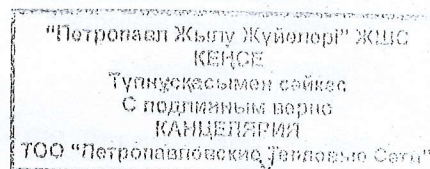 "Петропавл Жылу Жүйелері" ЖШС
КЕҢСЕ
Түпнұсқасымен сәйкес
С подлинным верно
КАНЦЕЛЯРИЯ
ТОО "Петропавловские Тепловые Сети"